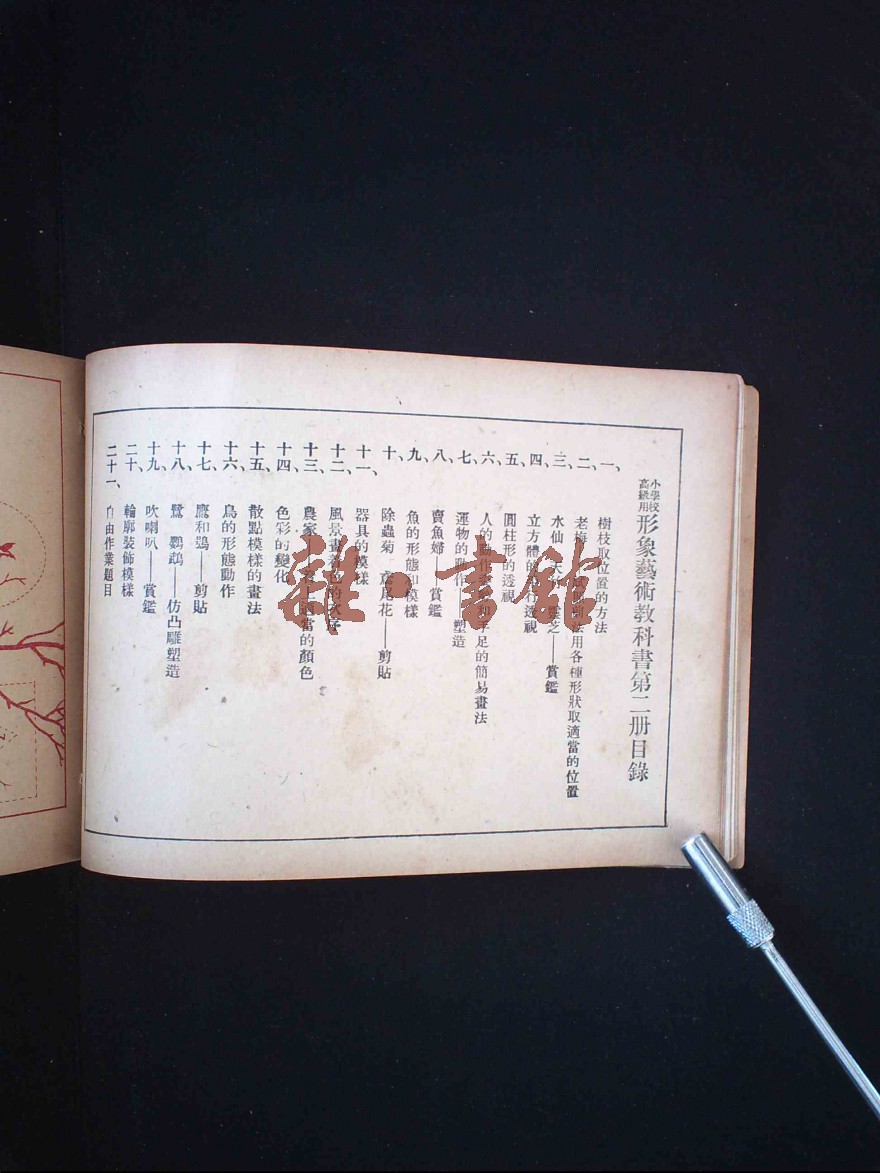 小學校高級用 形象藝術教科書第二册目錄
一、樹枝取位置的方法
二、老梅 用各種形狀取適當的位置
三、水仙 天竹 靈芝——賞鑑
四、立方體的平行透視
五、圓柱形的透視
六、人的動作 和手足的簡易畫法
七、運物的動作——塑造
八、賣魚婦——賞鑑
九、魚的形態和模樣
十、除蟲菊 鳶尾花——剪貼
十一、器具的模樣
十二、風景畫着色的次序
十三、農家 上適當的顏色
十四、色彩的變化
十五、散點模樣的畫法
十六、鳥的形態動作
十七、鷹和鵶——剪貼
十八、鷺 鸚鵡——仿凸雕塑造
十九、吹喇叭——賞鑑
二十、輪廓裝飾模樣
二十一、自由作業題目
雜·書館